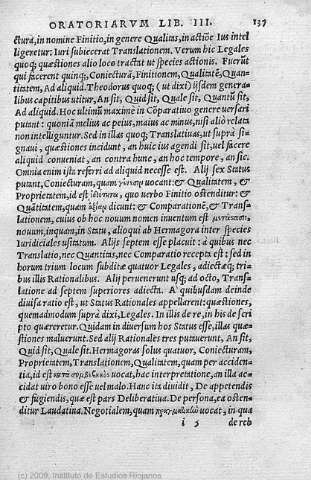 ORATORIARVM LIB. III. 137
cturã, in nomine Finitio, in genere Qualitas, in actiõe Ius intel
ligenetur: Iuri subiecerat Translationem. Verum hic Legales
quoq; quæstiones alio loco tractat ut species actionis. Fuerũt
qui facerent quinq;, Coniecturã, Finitionem, Qualitatẽ, Quan-
titatem, Ad aliquid. Theodorus quoq; (ut dixi) ijsdem genera-
libus capitibus utitur, An sit, Quid sit, Quale sit, Quantũ sit,
Ad aliquid. Hoc ultimũ maxime in Cõparatino genere uersari
putant: quoniã melius ac peius, maius ac minus, nisi alio relata
non intelliguntur. Sed in illas quoq; Translatiuas, ut suprà si-
gnaui, quæstiones incidunt, an huic ius agendi sit, uel facere
aliquid conueniat, an contra hunc, an hoc tempore, an sic.
Omnia enim ista referri ad aliquid necesse est. Alij sex Status
putant, Coniecturam, quam uocant: & Qualitatem, &
Proprietatem, id est quo uerbo Finitio ostenditur: &
Quãtitatem, quam ἀξίαμ dicunt: & Comparationẽ, & Trans-
lationem, cuius ob hoc nouum nomen inuentum est
nouum, inquam, in Statu, alioqui ab Hermagora inter species
Iuridiciales usitatum. Alijs septem esse placuit: à quibus nec
Translatio, nec Quantitas, nec Comparatio recepta est: sed in
horum trium locum subditæ quatuor Legales, adiectæq; tri-
bus illis Rationalibus. Alij peruenerunt usq; ad octo, Trans-
latione ad septem superiores adiecta. A quibusdam deinde
diuisa ratio est, ut Status Rationales appellarent: quæstiones,
quemadmodum suprà dixi, Legales. In illis de re, in his de scri
pto quæreretur. Quidam in diuersum hos Status esse, illas quæ-
stiones maluerunt. Sed alij Rationales tres putauerunt, An sit,
Quid sit, Quale sit. Hermagoras solus quatuor, Coniecturam,
Proprietatem, Translationem, Qualitatem, quam per acciden-
tia, id est κατὰ συμβεβηκός uocat, hac interpretatione, an illa ac-
cidat uiro bono esse uel malo. Hanc ita diuidit, De appetendis
& fugiendis, quæ est pars Deliberatiua. De persona, ea osten-
ditur Laudatiua. Negotialem, quam πραγματικὴμ uocat, in qua
i 5 de reb
(c) 2009, Instituto de Estudios Riojanos